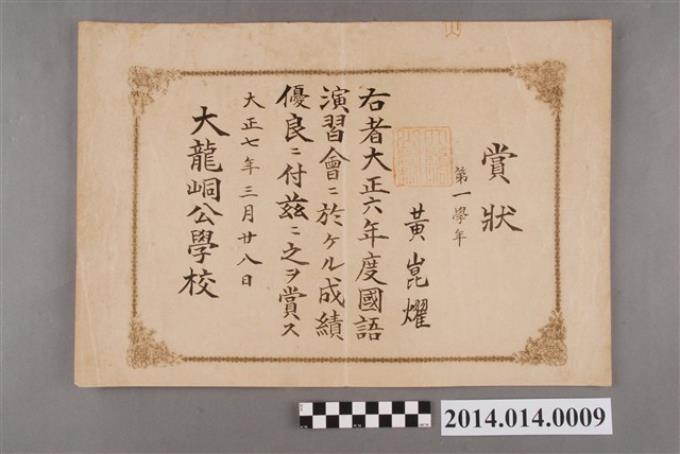 賞狀
第一學年
黃崑燿
右者大正六年度國語
演習會ニ於ケル成績
優良ニ付茲ニ之ヲ賞ス
大正七年三月廿八日
大龍峒公學校
2014.014.0009